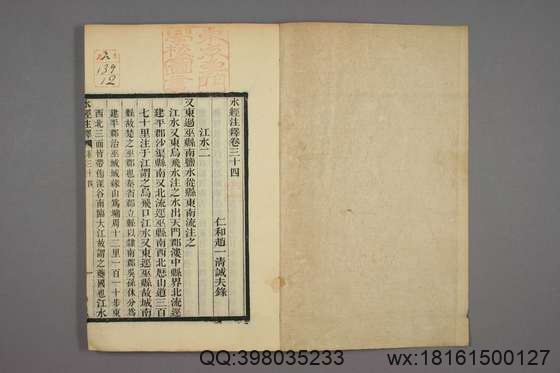 水經注釋卷三十四
仁和趙一清誠夫錄
江水二
又東過巫縣南鹽水從縣東南流注之
江水又東烏飛水注之水出天門郡漊中縣界北流逕
建平郡沙渠縣南又北流逕巫縣南西北歷山道三百
七十里注于江謂之烏飛口江水又東逕巫縣故城南
縣故楚之巫郡也秦省郡立縣以隸南郡吳孫休分爲
建平郡治巫城城緣山爲墉周十二里一百一十步東
西北三面皆帶傍深谷南臨大江故謂之夔國也江水
水經注釋
卷三十四
139
12
QQ:398035233
wx:18161500127